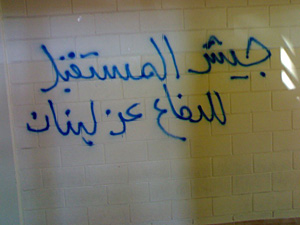 جيش المستقبل
للدفاع عن لبنان